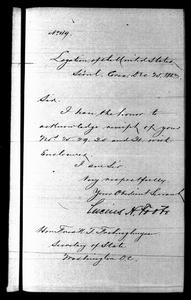 No. 49.
Legation of the United States
Seoul, Corea, Dec. 20, 1883
Sir,
I have the honor to
acknowledge receipt of your
Nos. 28, 29, 30 and 31, with
Enclosures.
I am Sir
Very respectfully
Your Obedient Servant
Lucius H. Foote
Hon. Fredk. T. Frelinghuysen
Secretary of State
Washington D.C.